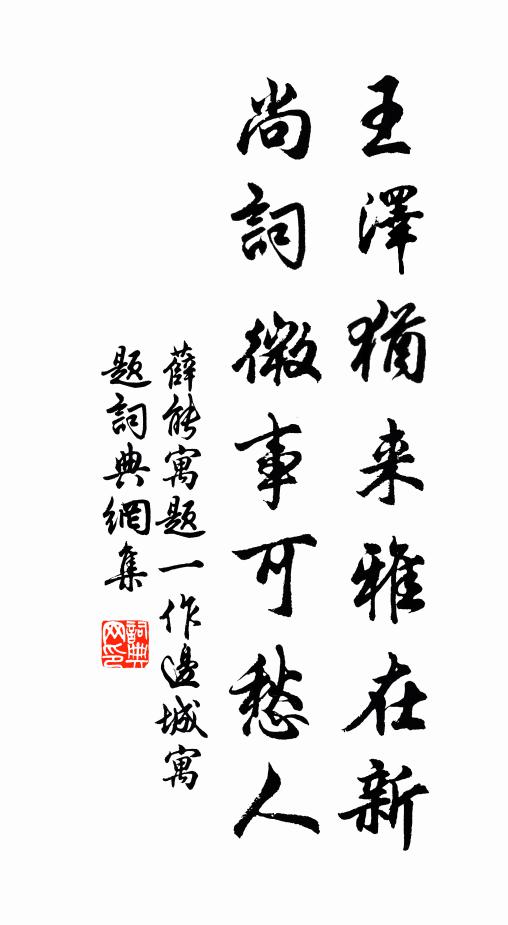 王澤猶来雅在新
尚詞微事可愁人
薛能寓題一作邊城寓
題詞典網集
詞典
网印